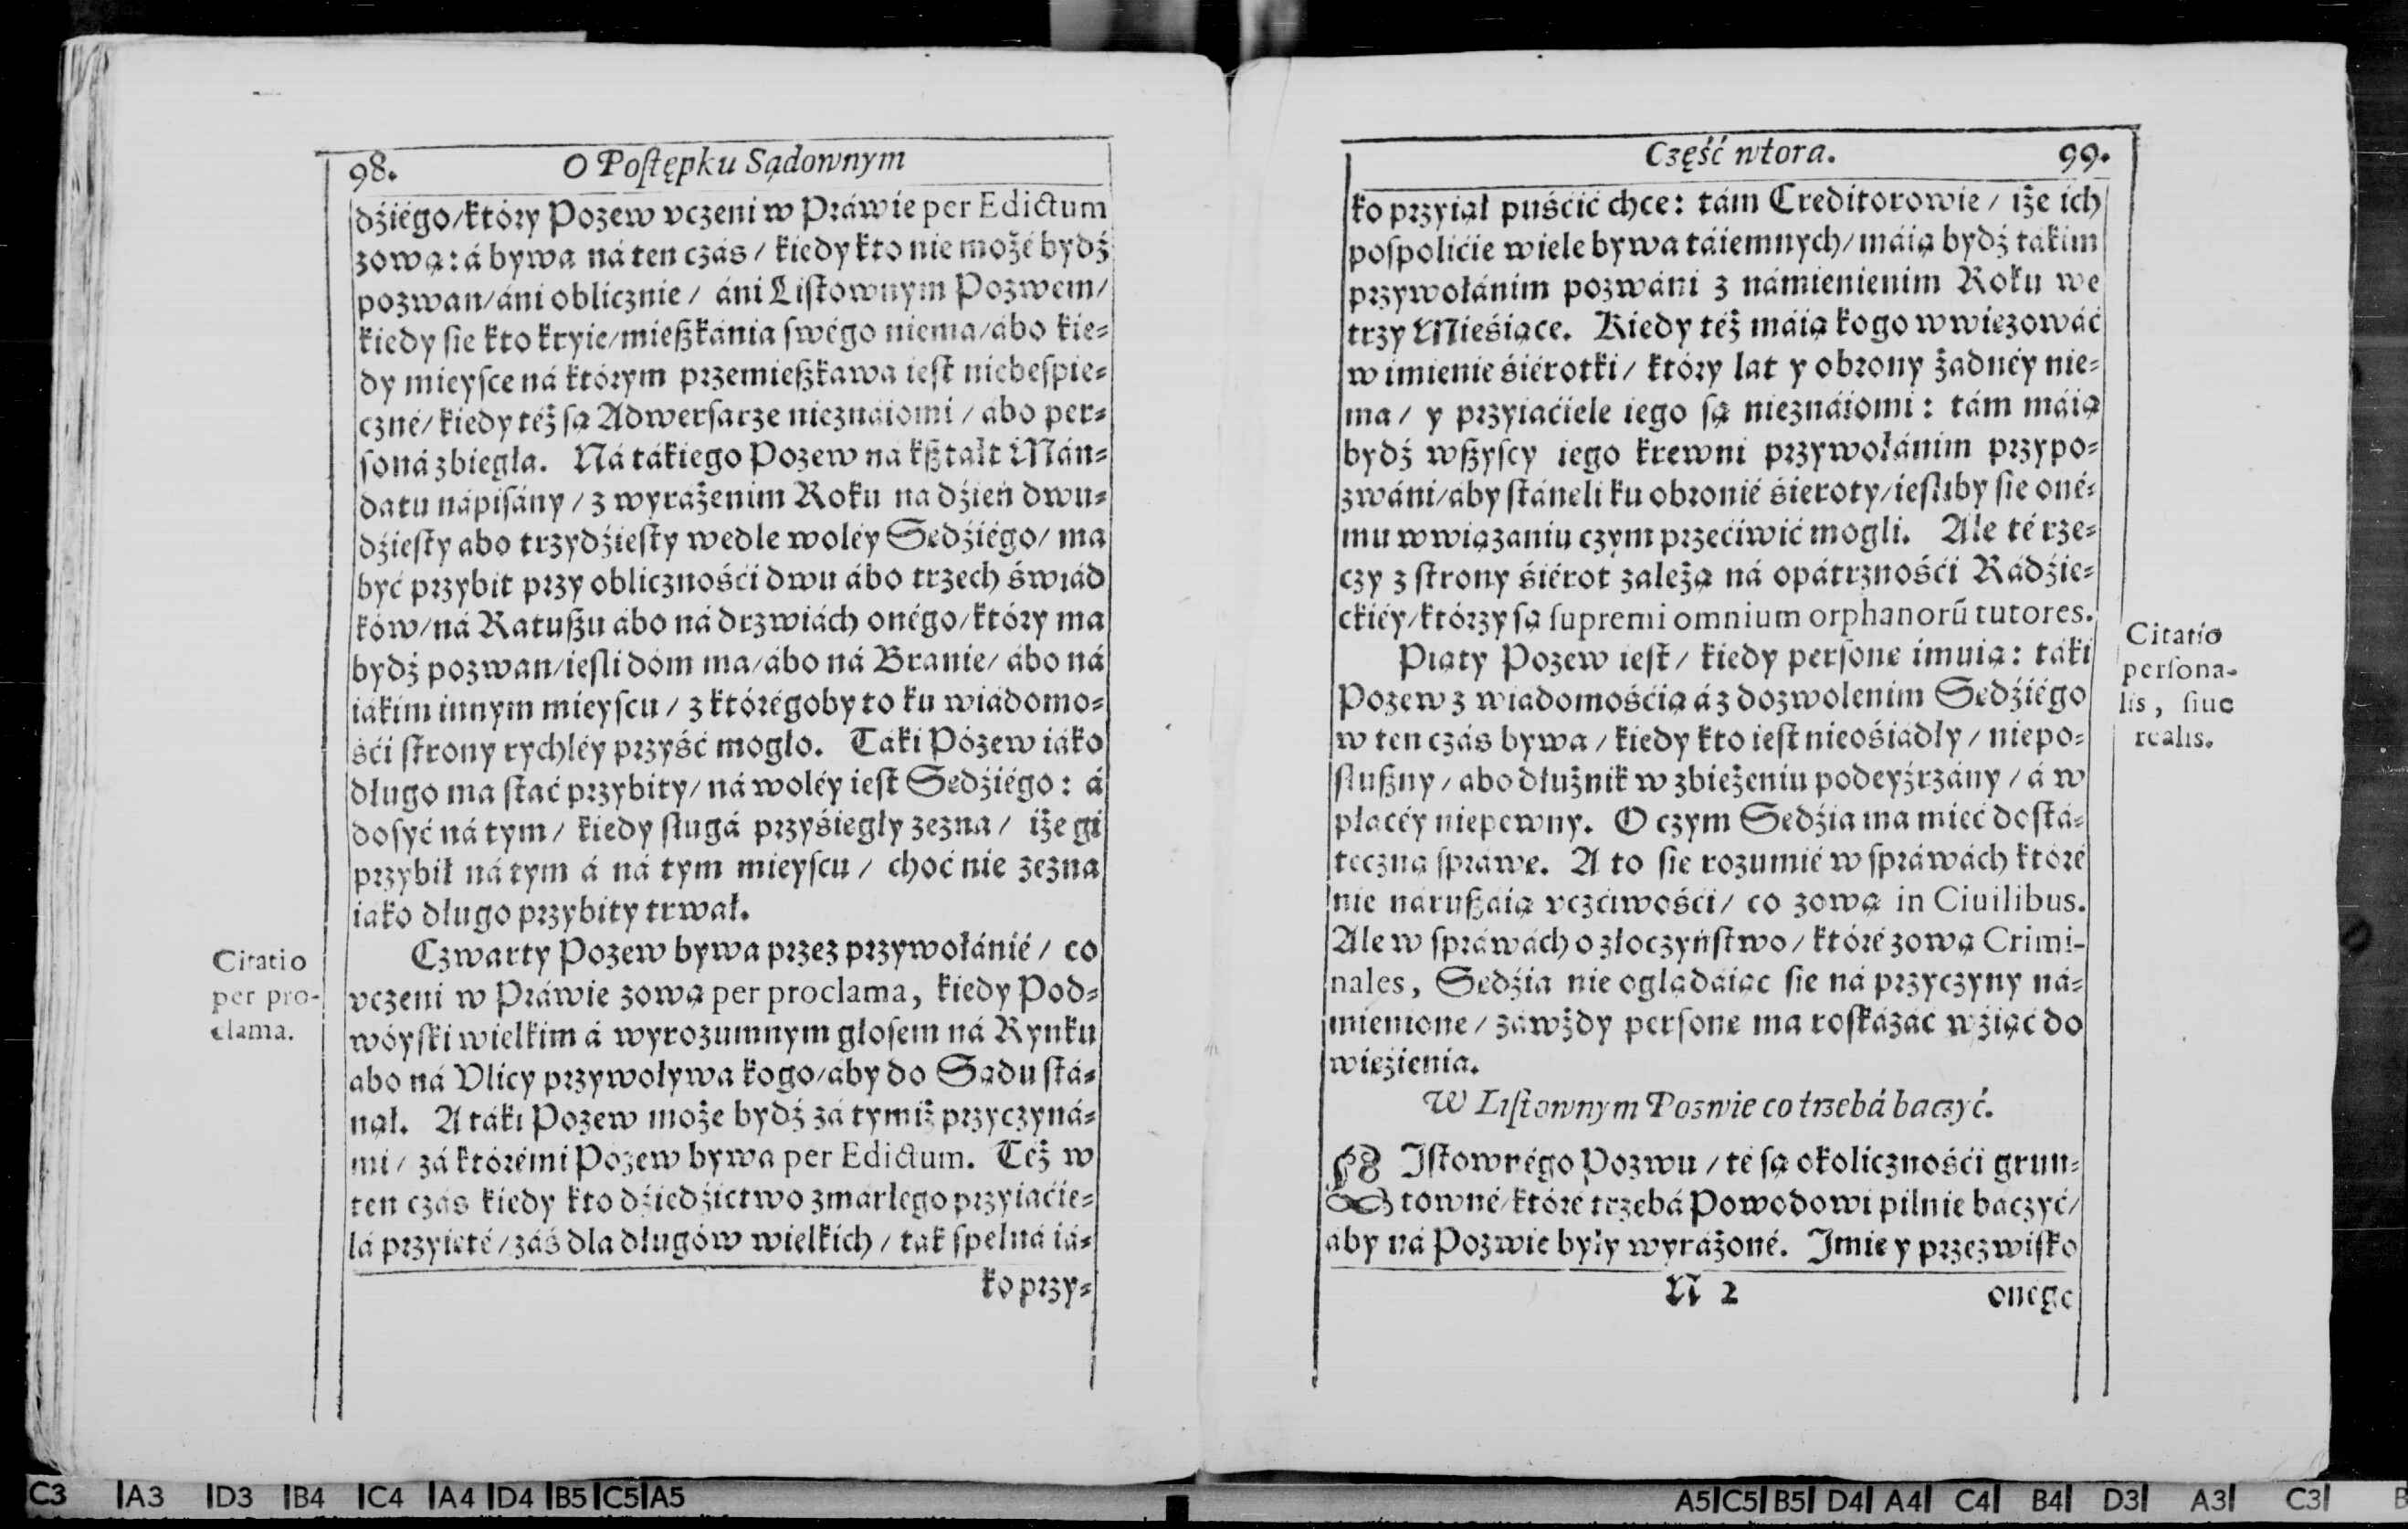 98. O Poſtępku Sądownym
dźiégo/który Pozew vczeni w Práwie per Edictum
zową: á bywa ná ten czás / kiedy kto nie możé bydź
pozwan/áni oblicznie / áni Liſtownym Pozwem/
kiedy ſie kto kryie/mießkánia ſwégo niema/ábo kie-
dy mieyſce ná którym przemießkawa ieſt niebeſpie-
czné/ kiedy téż ſą Adwerſarze nieznáiomi / ábo per-
ſoná zbiegła. Ná tákiego Pozew na kßtałt Mán-
datu nápiſány / z wyráżenim Roku na dźień dwu-
dźieſty abo trzydźieſty wedle woléy Sedźiégo/ ma
być przybit przy oblicznośći dwu ábo trzech świád
ków/ná Ratußu ábo ná drzwiách onégo/który ma
bydź pozwan/ieſli dóm ma/ábo ná Branie/ ábo ná
iákim innym mieyſcu / z którégoby to ku wiádomo-
śći ſtrony rychléy przyść mogło. Táki Pózew iáko
długo ma ſtać przybity/ ná woléy ieſt Sedźiégo: á
doſyć ná tym / kiedy ſługá przyśiegły zezna / iże gi
przybił ná tym á ná tym mieyſcu / choć nie zezna
iako długo przybity trwał.
Czwarty Pozew bywa przez przywołánié / co
vczeni w Práwie zową per proclama, kiedy Pod-
wóyſki wielkim á wyrozumnym głoſem ná Rynku
abo ná Vlicy przywoływa kogo/aby do Sądu ſtá-
nął. A táki Pozew może bydź zá tymiż przyczyná-
mi / zá którémi Pozew bywa per Edictum. Téż w
ten czás kiedy kto dźiedźictwo zmarłego przyiaćie-
lá przyieté / záś dla długów wielkich / tak ſpełná iá-
ko przy-
Citatio
per pro-
clama.
Część wtora. 99.
ko przyiął puśćić chce: tám Creditorowie / iże ich
poſpolićie wiele bywa táiemnych/máią bydź takim
przywołánim pozwáni z námienienim Roku we
trzy Mieśiące. Kiedy téż máią kogo wwiezowáć
w imienie śiérotki / który lat y obrony żadnéy nie-
ma / y przyiaćiele iego ſą nieznáiomi: tám máią
bydź wßyſcy iego krewni przywołánim przypo-
zwáni/áby ſtáneli ku obronié śieroty/ieſliby ſie oné-
mu wwiązaniu czym przećiwić mogli. Ale té rze-
czy z ſtrony śiérot zależą ná opátrznośći Rádźie-
ckiéy/którzy ſą ſupremi omnium orphanorū tutores.
Piąty Pozew ieſt / kiedy perſone imuią: táki
Pozew z wiadomośćią á z dozwolenim Sedźiégo
w ten czás bywa / kiedy kto ieſt nieośiádły / niepo-
ſłußny / abo dłużnik w zbieżeniu podeyźrzány / á w
płacéy niepewny. O czym Sedźia ma mieć doſtá-
teczną ſpráwe. A to ſie rozumié w ſpráwách któré
nie narußáią vczćiwośći / co zową in Ciuilibus.
Ale w ſpráwách o złoczyńſtwo / któré zową Crimi-
nales, Sedźia nie oglądáiąc ſie ná przyczyny ná-
mienione / záwżdy perſone ma roſkázáć wźiąć do
wieźienia.
W Liſtownym Pozwie co trzebá baczyć.
LIſtownégo Pozwu / té ſą okolicznośći grun-
towné/któré trzebá Powodowi pilnie baczyć/
aby ná Pozwie były wyráżoné. Imie y przezwiſko
N 2 onégo
Citatio
perſona-
lis, ſiue
realis.
C3 A3 D3 B4 C4 A4 D4 B5 C5 A5
A5 C5 B5 D4 A4 C4 B4 D3 A3 C3 B